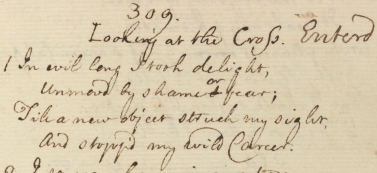 309.
Looking at the Cross. Enterd
1 In evil long I took delight,
Unmovd by shame or fear;
Till a new object struck my sight,
And stopp'd my wild Career.